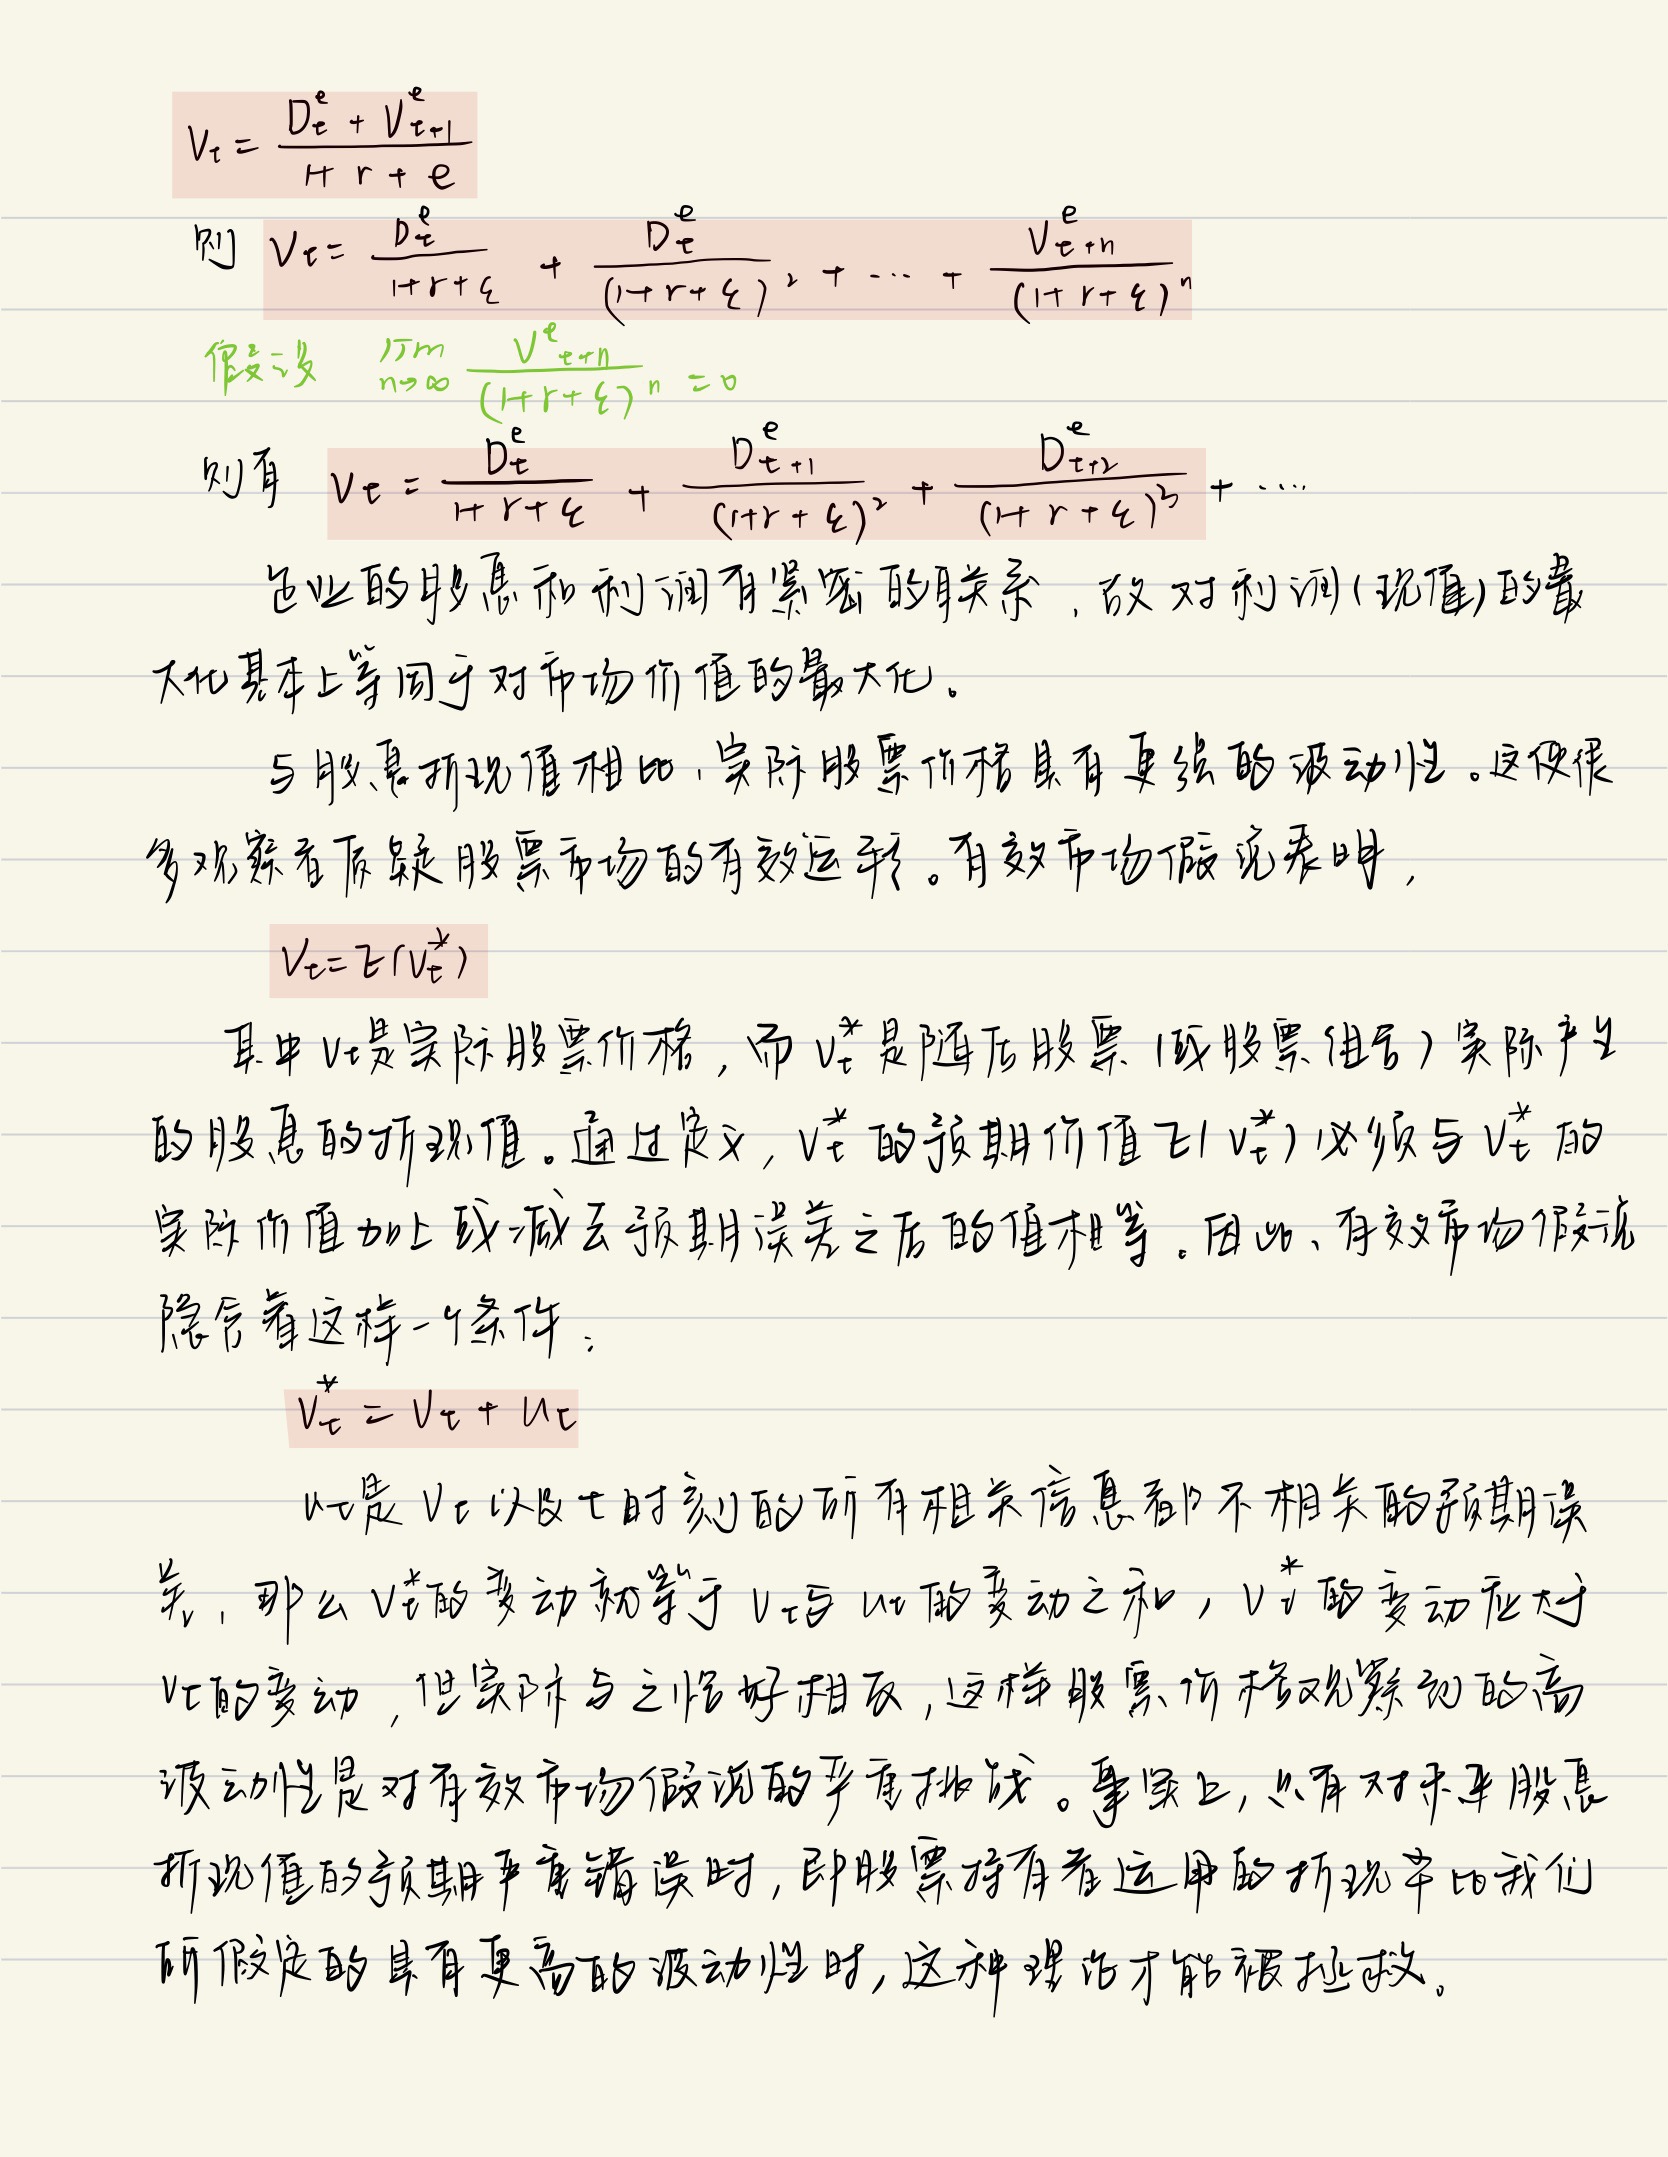 V_t = (D_t^e + V_{t+1}^e) / (1 + r + e)
则 V_t = D_t^e / (1+r+ε) + D_t^e / (1+r+ε)^2 + … + V_{t+n}^e / (1+r+ε)^n
假设 lim_{n→∞} V_{t+n}^e / (1+r+ε)^n = 0
则有 V_t = D_t^e / (1+r+ε) + D_{t+1}^e / (1+r+ε)^2 + D_{t+2}^e / (1+r+ε)^3 + …
企业的股息和利润有紧密的联系,故对利润(现值)的最
大化基本上等同于对市场价值的最大化。
与股息折现值相比,实际股票价格具有更强的波动性。这使很
多观察者质疑股票市场的有效运转。有效市场假说表明,
V_t = E(V_t^*)
其中V_t是实际股票价格,而V_t^*是随后股票(或股票组合)实际产生
的股息的折现值。通过定义,V_t^*的预期价值E(V_t^*)必须与V_t^*的
实际价值加上或减去预期误差之后的值相等。因此、有效市场假说
隐含着这样一个条件:
V_t^* = V_t + u_t
u_t是V_t以及t时刻的所有相关信息都不相关的预期误
差,那么V_t^*的变动就等于V_t与u_t的变动之和,V_t^*的变动应大于
V_t的变动,但实际与之恰好相反,这样股票价格观察到的高
波动性是对有效市场假说的严重挑战。事实上,只有对未来股息
折现值的预期严重错误时,即股票持有者运用的折现率比我们
所假定的具有更高的波动性时,这种理论才能被拯救。